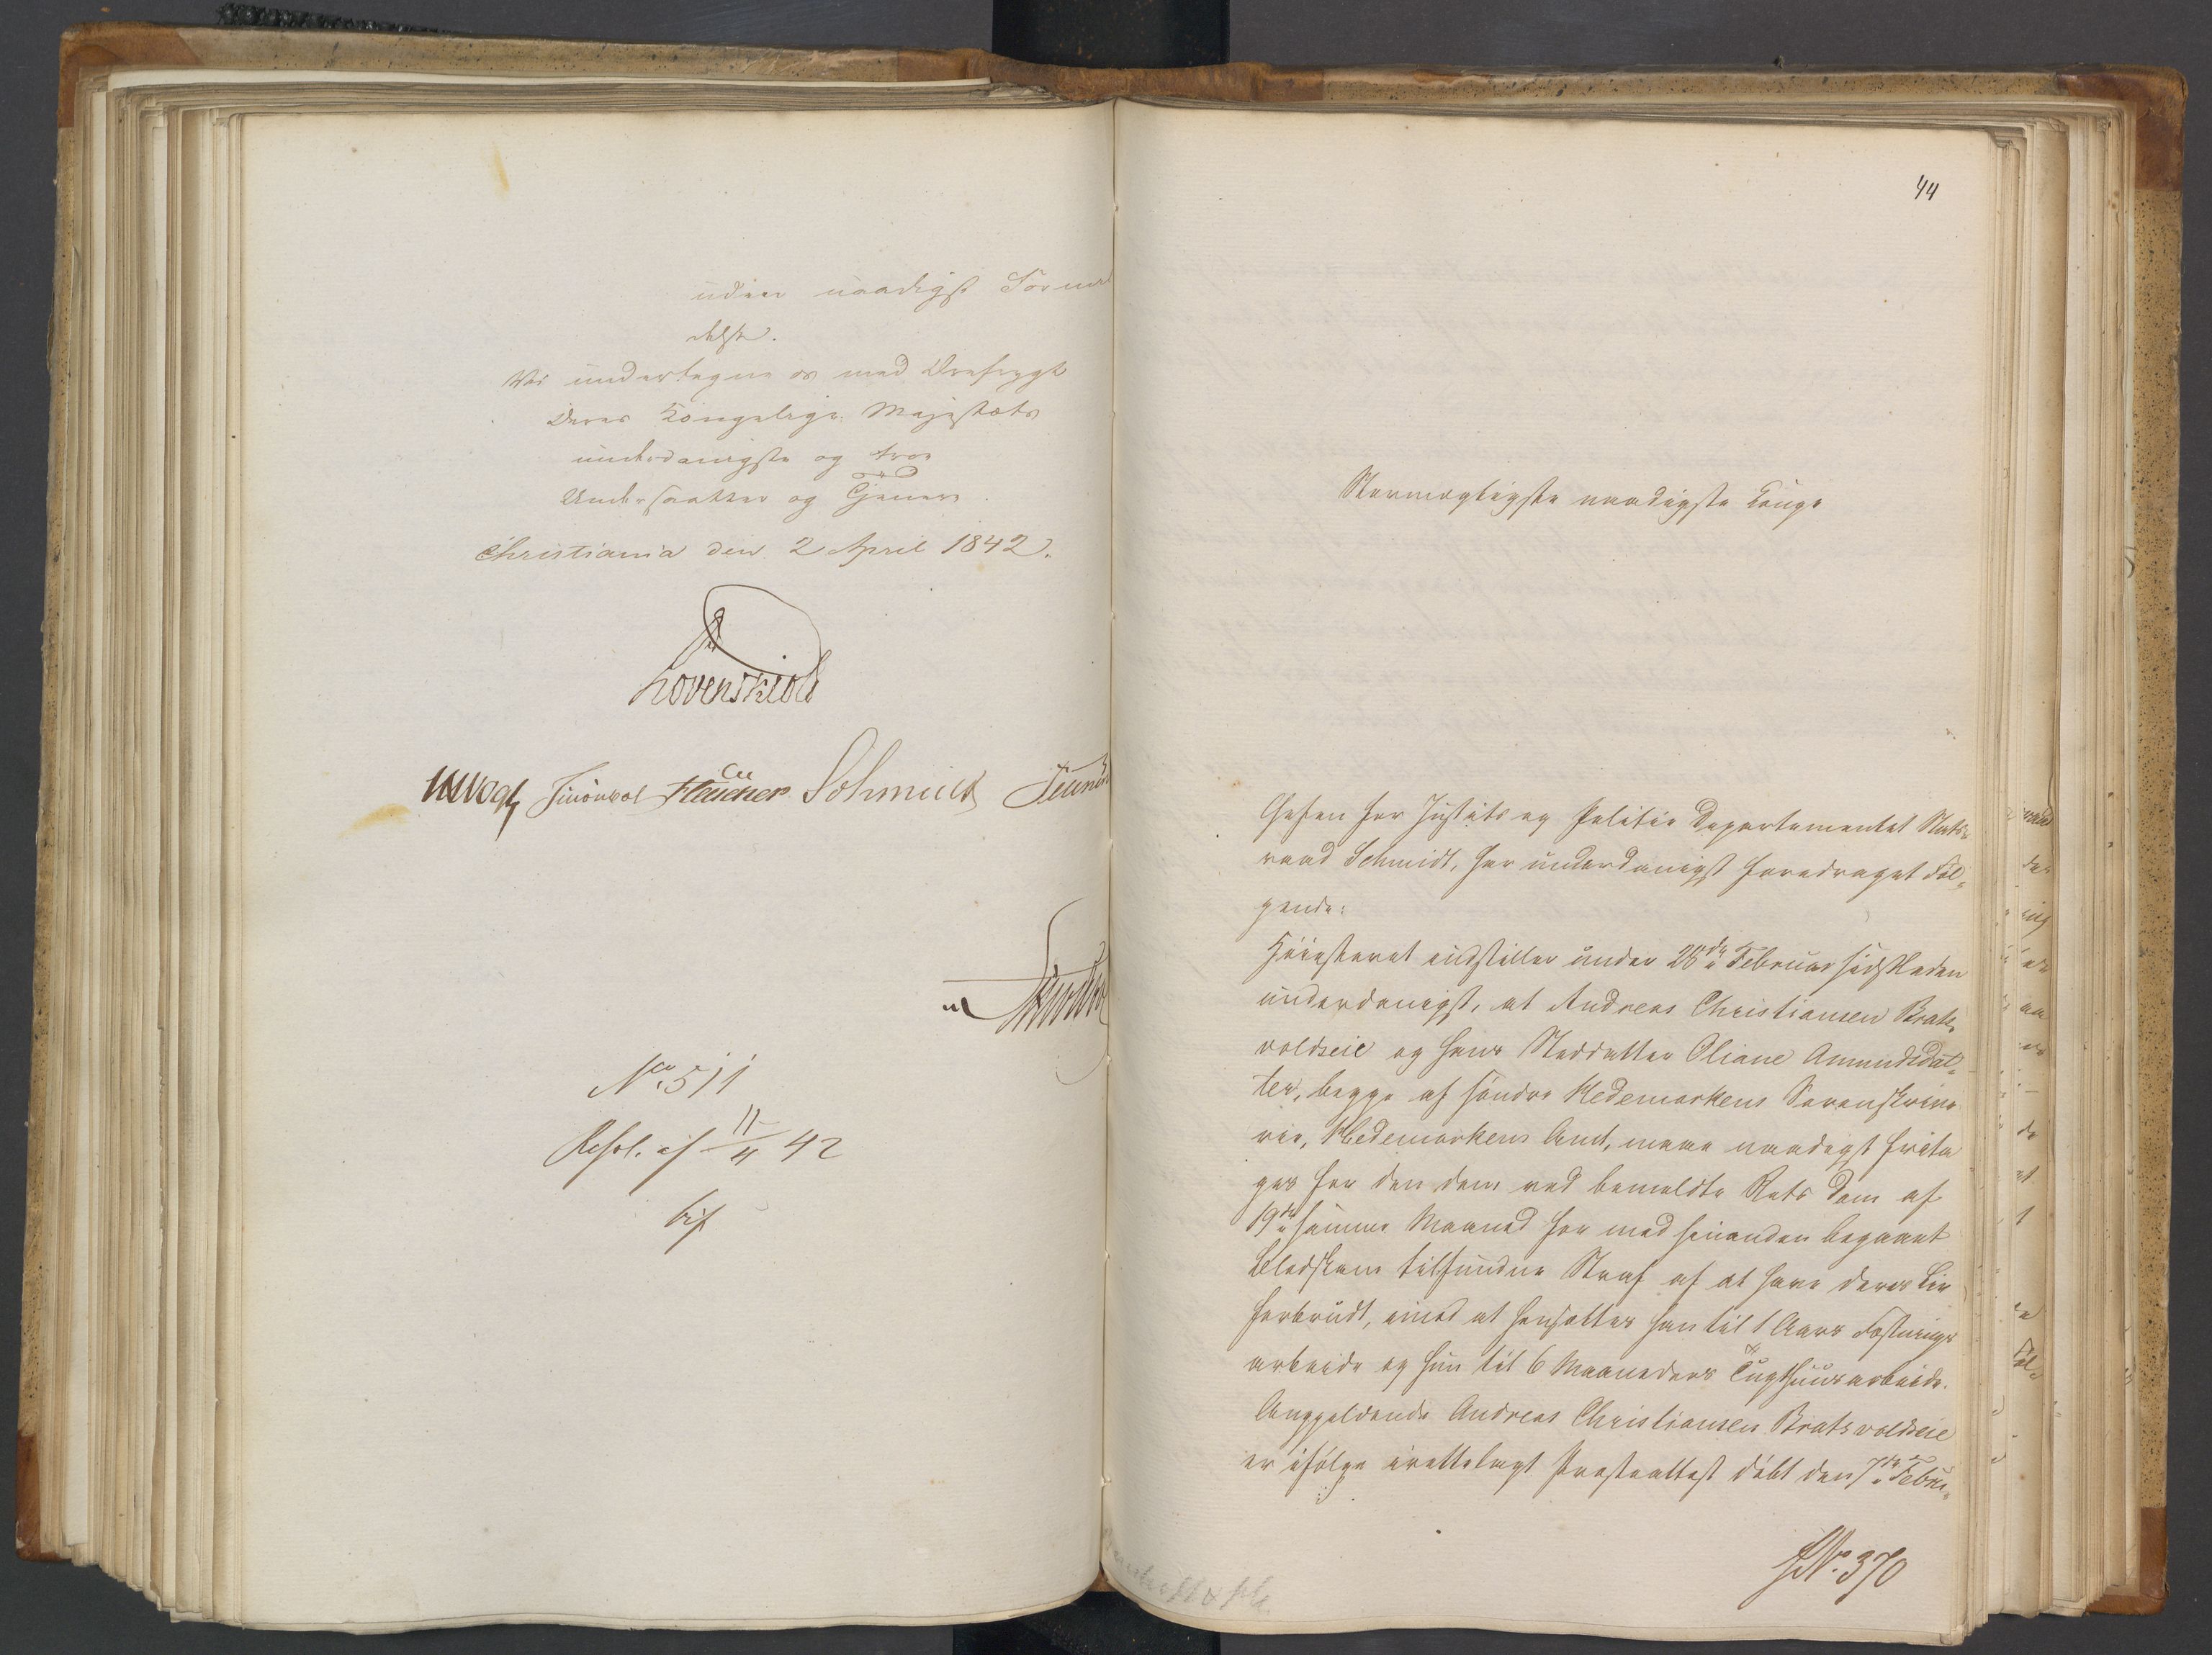 uden naadigst Formel
delse.
Vi undertegne os med Ærefrygt
Deres Kongelige Majestæts
underdanigste og troe
Undersaatter og Tjenere.
Christiania den 2 April 1842.
Løvenskiold
Vogt Schmidt
No 511
Resol. af 11/4 42
bif
44
Stormægtigste naadigste Konge
Chefen for Justits og Politie Departementet Stats-
raad Schmidt, har underdanigst foredraget Føl-
gende:
Høiesteret indstiller under 28de Februar sidstleden
underdanigst, at Andreas Christiansen Brats-
voldseie og hans Steddatter Oliane Amundsdat-
ter, begge af søndre Hedemarkens Sorenskrive
rie, Hedemarkens Amt, maae naadigst frita
ges for den dem ved bemeldte Rets Dom af
19de samme Maaned for med hinanden begaaet
Blodskam tilfundne Straf af at have deres Liv
forbrudt, imod at hensættes han til 1 Aars Fæstnings
arbeide og hun til 6 Maaneders Tugthuusarbeide.
Angjeldende Andreas Christiansen Bratsvoldseie
er ifølge irettelagt Præsteattest døbt den 7de Febru-
JNo. 370